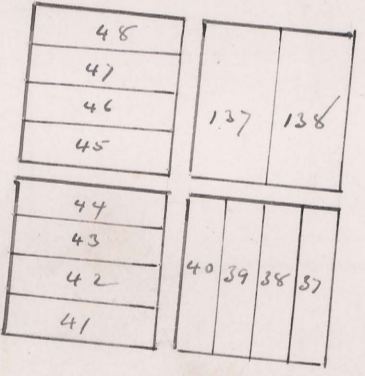 48
47
46
45
137 138
44
43
42
41
40 39 38 37